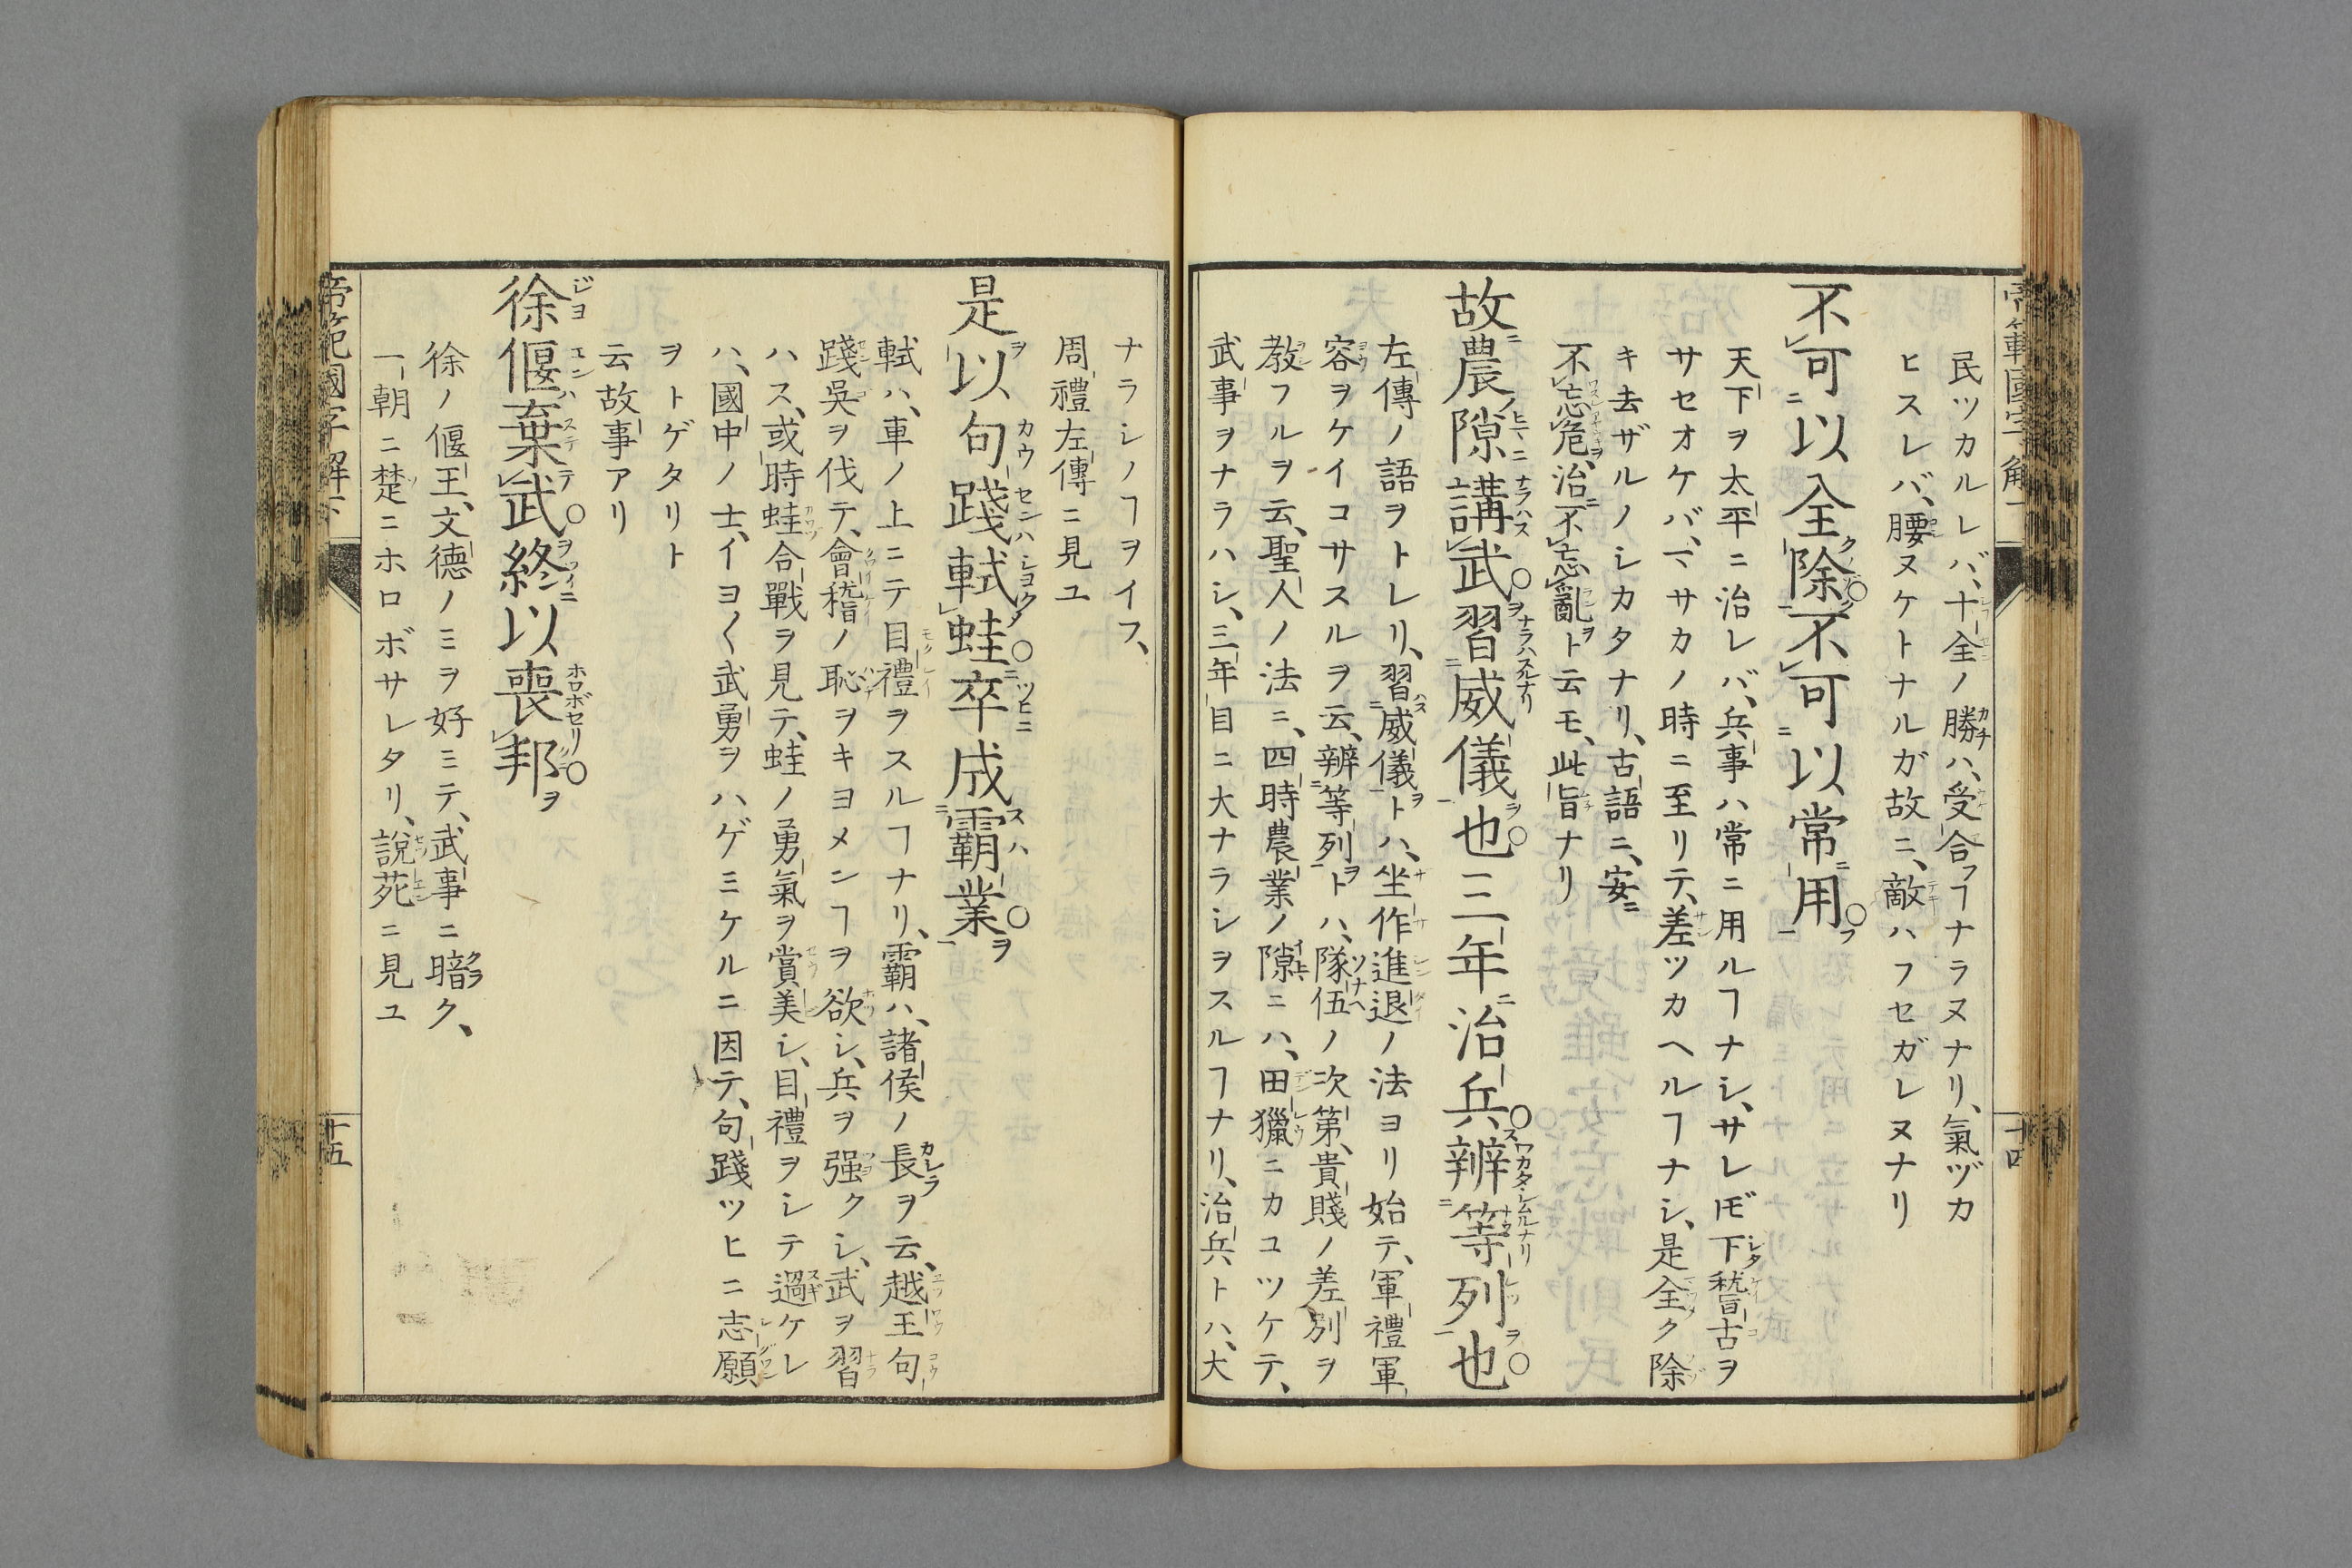 民ツカルレバ、十全ノ勝ハ、受合フヿナラヌナリ、氣ヅカ
ヒスレバ、腰ヌケトナルガ故ニ、敵ハフセガレヌナリ
不可以全除不可以常用
天下ヲ太平ニ治レバ、兵事ハ常ニ用ルヿナシ、サレㇳモ下稽古ヲ
サセオケバ、マサカノ時ニ至リテ、差ツカヘルヿナシ、是全ク除
キ去ザルノシカタナリ、古語ニ、安ニ
不忘危、治ニ不忘亂ヲト云モ、此旨ナリ
故農隙講武習威儀也三年治兵辨等列也
左傳ノ語ヲトレリ、習威儀ヲトハ、坐作進退ノ法ヨリ始テ、軍禮軍
容ヲケイコサスルヲ云、辨等列ヲトハ、隊伍ノ次第、貴賤ノ差別ヲ
教フルヲ云、聖人ノ法ニ、四時農業ノ隙ニハ、田獵ニカコツケテ、
武事ヲナラハシ、三年目ニ大ナラシヲスルヿナリ、治兵トハ、大
ナラシノヿヲイフ、
周禮左傳ニ見ユ
是以句踐軾蛙卒成霸業
軾ハ、車ノ上ニテ目禮ヲスルヿナリ、霸ハ、諸侯ノ長ヲ云、越王句
踐吳ヲ伐テ、會稽ノ恥ヲキヨメンヿヲ欲シ、兵ヲ强クシ、武ヲ習
ハス、或時蛙合戰ヲ見テ、蛙ノ勇氣ヲ賞美シ、目禮ヲシテ過ケレ
ハ、國中ノ士、イヨ〱武勇ヲハゲミケルニ因テ、句踐ツヒニ志願
ヲトゲタリト
云故事アリ
徐偃棄武終以喪邦
徐ノ偃王、文德ノミヲ好ミテ、武事ニ暗ク、
一朝ニ楚ニホロボサレタリ、說苑ニ見ユ
帝範國字解下
十五